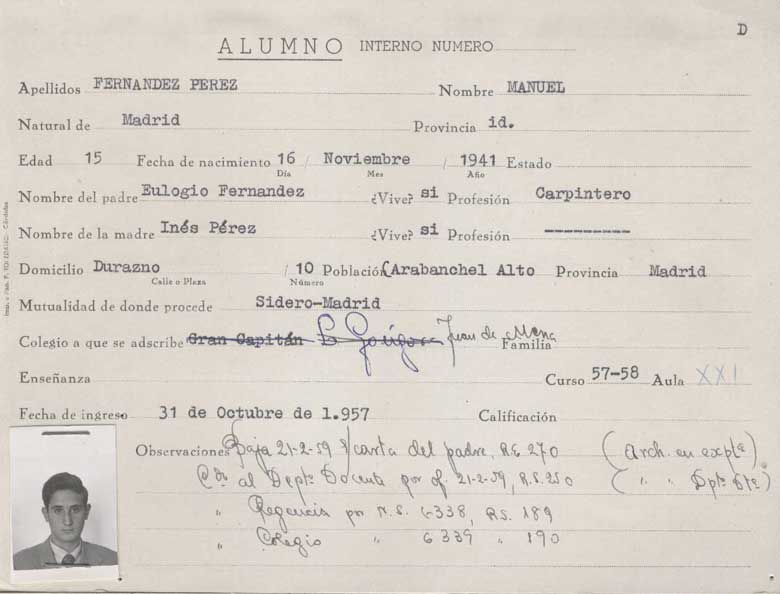 D
ALUMNO INTERNO NUMERO
Apellidos FERNANDEZ PEREZ Nombre MANUEL
Natural de Madrid Provincia id.
Edad 15 Fecha de nacimiento 16 / Noviembre / 1941 Estado
Día Mes Año
Nombre del padre Eulogio Fernandez ¿Vive? si Profesión Carpintero
Nombre de la madre Inés Pérez ¿Vive? si Profesión -------
Domicilio Durazno / 10 Población Carabanchel Alto Provincia Madrid
Calle o Plaza Número
Mutualidad de donde procede Sidero-Madrid
Colegio a que se adscribe Gran Capitán L Góngora Juan de Mena
Familia
Enseñanza Curso 57-58 Aula XXI
Fecha de ingreso 31 de Octubre de 1.957 Calificación
Observaciones Baja 21-2-59 s/ carta del padre, R.E. 270 (Arch. en expte)
al Depto Docente por of. 21-2-59, R.S. 250 ( " " Dpto Dte)
" Regencia por N.S. 6338, R.S. 189
" Colegio " 6339 " 190